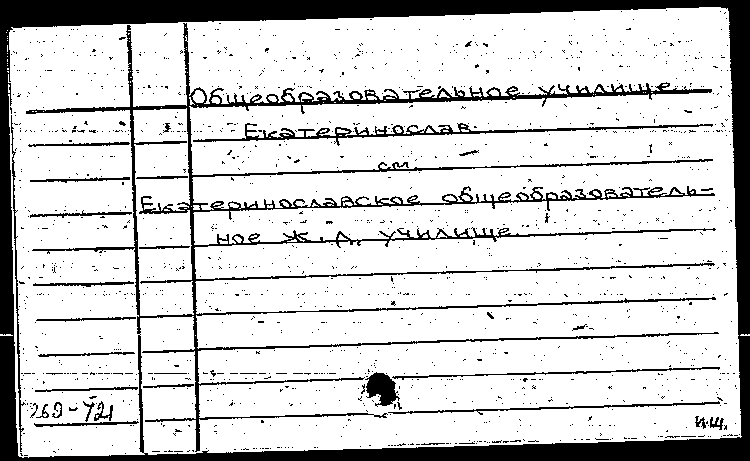 Общеобразовательное училище
Екатеринослав.
см.
Екатеринославское общеобразователь=
ное Ж.Д. училище
269-721
И.Щ.